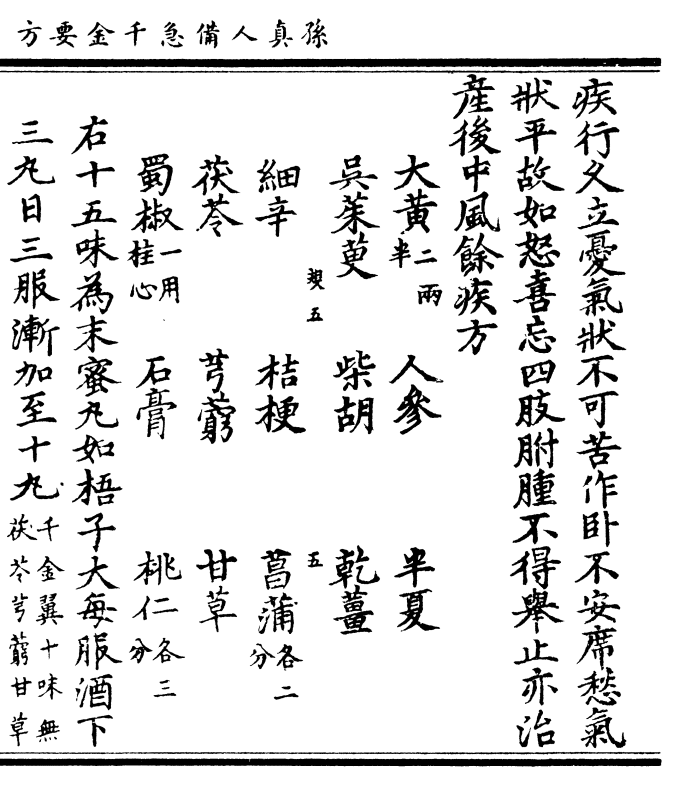 孫真人備急千金要方
疾行久立憂氣狀不可苦作卧不安席愁氣
狀平故如怒喜忘四肢胕腫不得舉止亦治
産後中風餘疾方
大黃二兩半 人參 半夏
吳茱萸 柴胡 乾薑
五 五
細辛 桔梗 菖蒲各二分
茯苓 芎藭 甘草
蜀椒一用桂心 石膏 桃仁各三分
右十五味為末蜜丸如梧子大每服酒下
三丸日三服漸加至十丸千金翼十味無茯苓芎藭甘草